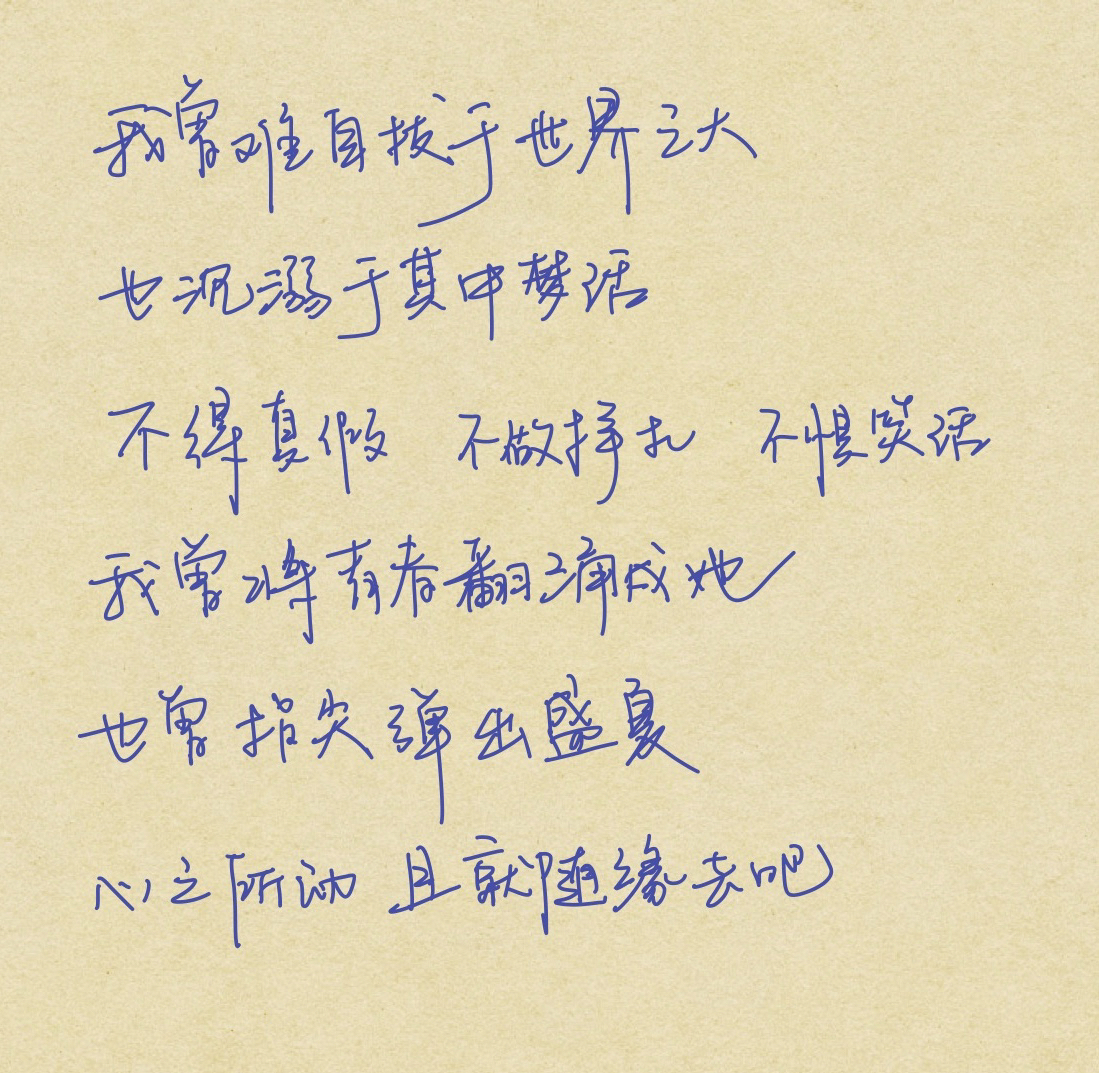 我曾难自拔于世界之大
也沉溺于其中梦话
不得真假 不做挣扎 不惧笑话
我曾将青春翻涌成她
也曾指尖弹出盛夏
心之所动 且就随缘去吧